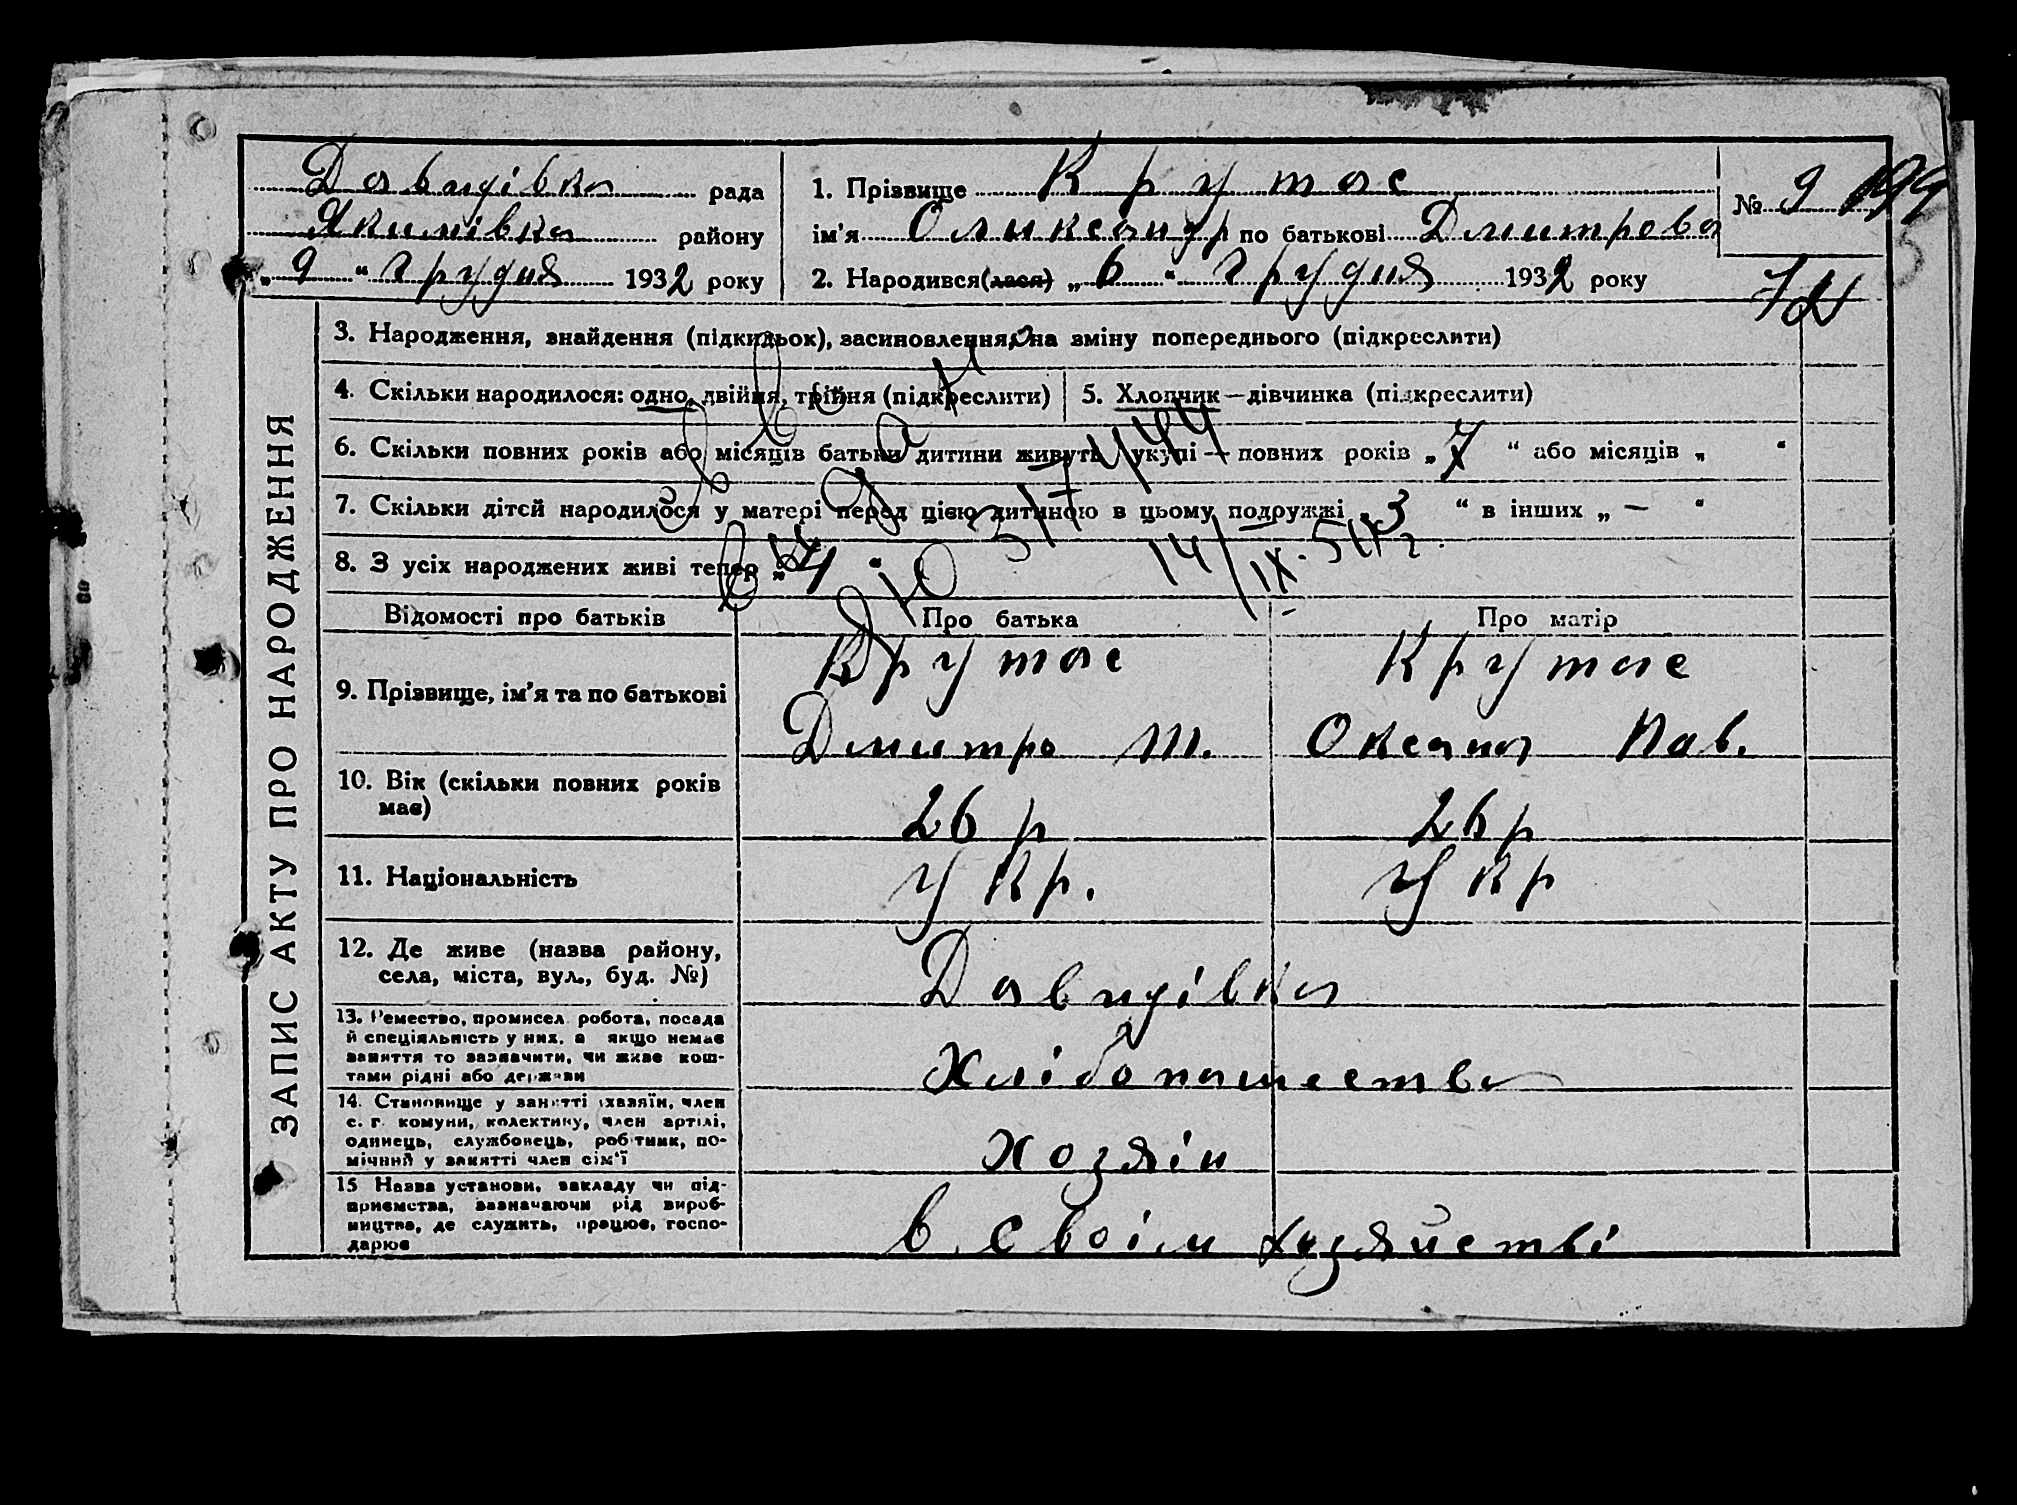 Давидівка рада
Якимівка району
„ 9 “ грудня 1932 року
1. Прізвище Крутас
ім’я Олександр по батькові Дмитрова
2. Народився(лася) „ 6 “ грудня 1932 року
№ 9
ЗАПИС АКТУ ПРО НАРОДЖЕННЯ
3. Народження, знайдення (підкидьок), засиновлення, на зміну попереднього (підкреслити)
4. Скільки народилося: одно, двійня, трійня (підкреслити)
5. Хлопчик—дівчинка (підкреслити)
6. Скільки повних років або місяців батьки дитини живуть укупі — повних років „ 7 “ або місяців „ “
7. Скільки дітей народилося у матері перед цією дитиною в цьому подружжі „ 3 “ в інших „ — “
8. З усіх народжених живі тепер „ 4 “
14/IX-51
Відомості про батьків
Про батька
Про матір
9. Прізвище, ім’я та по батькові
Крутас
Дмитро Т.
Крутас
Оксана Пав.
10. Вік (скільки повних років
має)
26 р
26 р
11. Національність
Укр.
Укр
12. Де живе (назва району,
села, міста, вул., буд. №)
Давидівка
13. Ремество, промисел, робота, посада
й спеціяльність у них, а якщо немає
заняття то зазначити, чи живе кош-
тами рідні або держави
Хлібопашество
14. Становище у занятті хазяїн, член
с. г. комуни, колективу, член артілі,
одинець, службовець, робітник, по-
мічний у занятті член сім’ї
Хозяін
15 Назва установи, закладу чи під-
приємства, зазначаючи рід вироб-
ництва, де служить, працює, госпо-
дарює
в своім хозяйстві